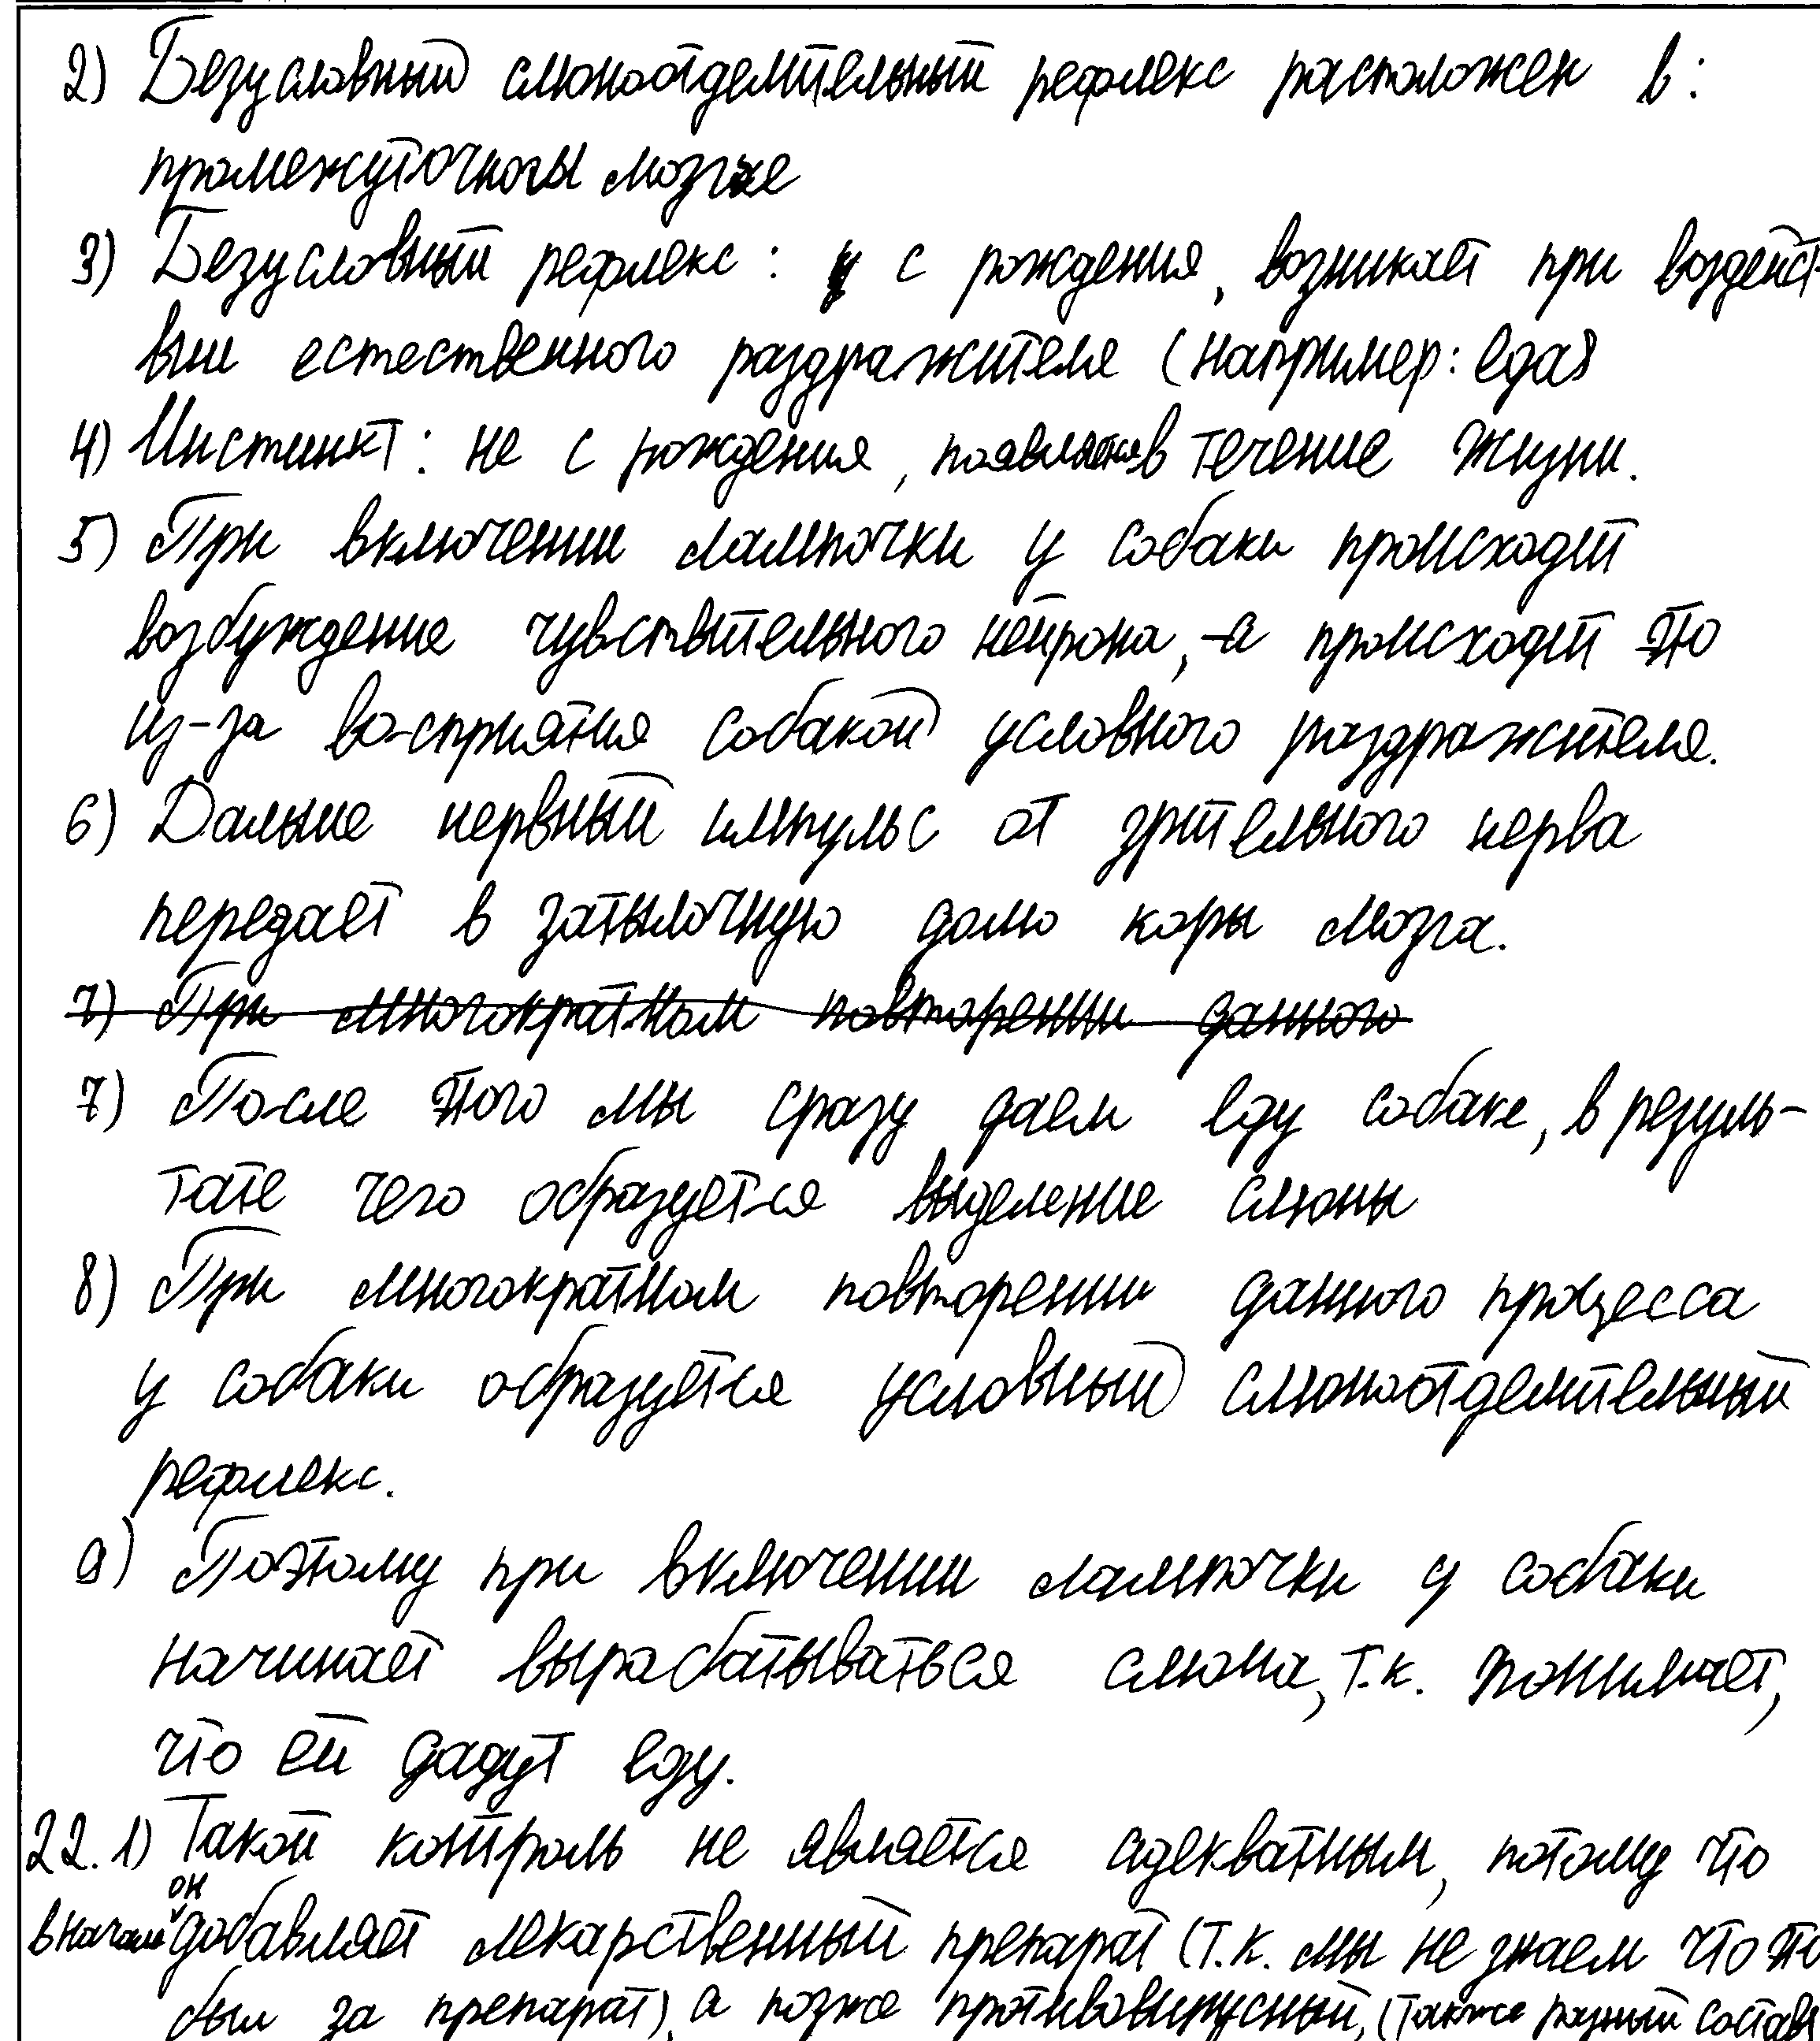 2) Безусловный слюноотделительный рефлекс расположен в:
промежуточногы мозге
3) Безусловный рефлекс: с рождения, возникает при воздейст-
вии естественного раздражителя (например: еда)
4) Инстинкт: не с рождения, появляется в течение жизни.
5) При включении лампочки у собаки происходит
возбуждение чувствительного нейрона, а происходит это
из-за восприятия собакой условного раздражителя.
6) Дальше нервный импульс от зрительного нерва
передаёт в затылочную долю коры мозга.
7) При многократном повторении данного
7) После этого мы сразу даем еду собаке, в резуль-
тате чего образуется выделение слюны
8) При многократном повторении данного процесса
у собаки образуется условный слюноотделительный
рефлекс.
9) Поэтому при включении лампочки у собаки
начинает вырабатываться слюна, т.к. понимает,
что ей дадут еду.
22. 1) Такой контроль не является адекватным, потому что
вначале он добавляет лекарственный препарат (т.к. мы не знаем что это
был за препарат), а позже противовирусный, (также разный состав